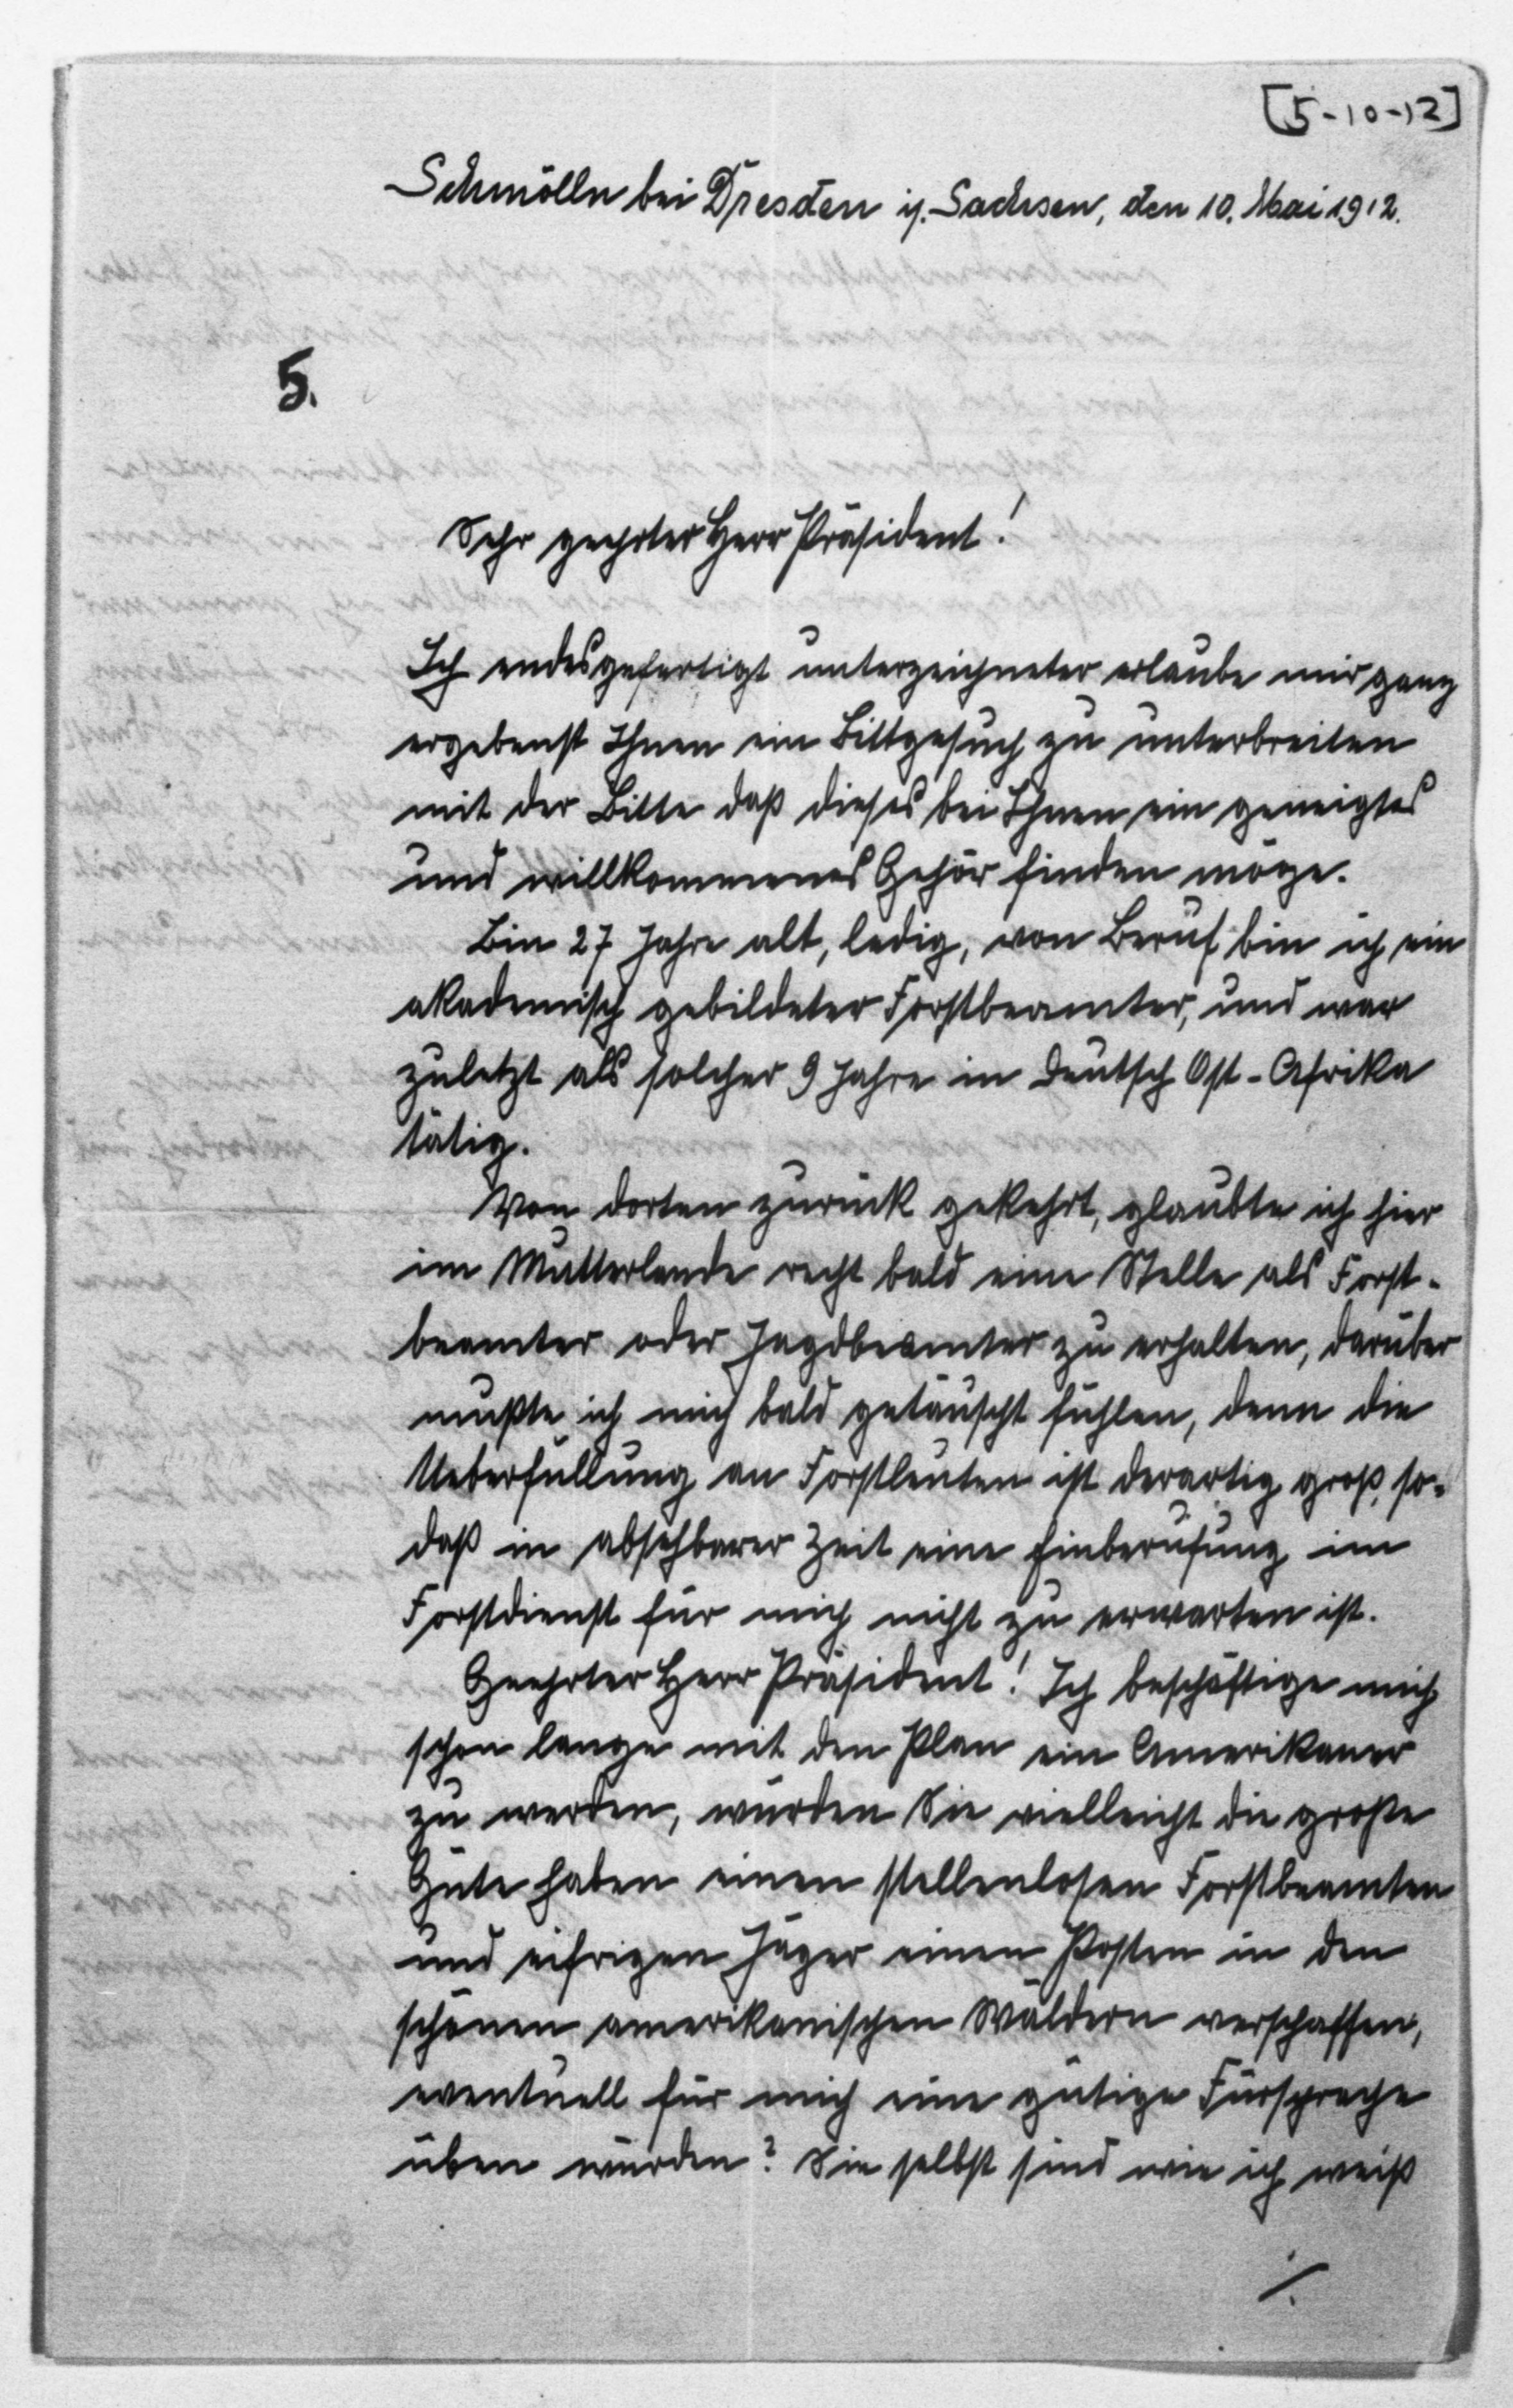 [5-10-12]
Schmölln bei Dresden i. Sachsen, den 10. Mai 1912.
5.
Sehr geehrter Herr Präsident!
Ich endesgefertigt unterzeichneter erlaube mir ganz
ergebenst Ihnen ein Bittgesuch zu unterbreiten
mit der Bitte daß dieses bei Ihnen ein geneigtes
und willkommenes Gehör finden möge.
Bin 27 Jahre alt, ledig, von Beruf bin ich ein
akademisch gebildeter Forstbeamter, und war
zuletzt als solcher 9 Jahre in Deutsch Ost-Afrika
tätig.
Von dorten zurück gekehrt, glaubte ich hier
im Mutterlande recht bald eine Stelle als Forst-
beamter oder Jagdbeamter zu erhalten, darüber
mußte ich mich bald getäuscht fühlen, denn die
Ueberfüllung an Forstleuten ist derartig groß, so-
daß in absehbarer Zeit eine Einberufung im
Forstdienst für mich nicht zu erwarten ist.
Geehrter Herr Präsident! Ich beschäftige mich
schon lange mit den Plan ein Amerikaner
zu werden, würden Sie vielleicht die große
Güte haben einen stellenlosen Forstbeamten
und eifrigen Jäger einen Posten in den
schönen amerikanischen Wäldern verschaffen,
eventuell für mich eine gütige Fürsprache
üben würden? Sie selbst sind wie ich weiß
./.